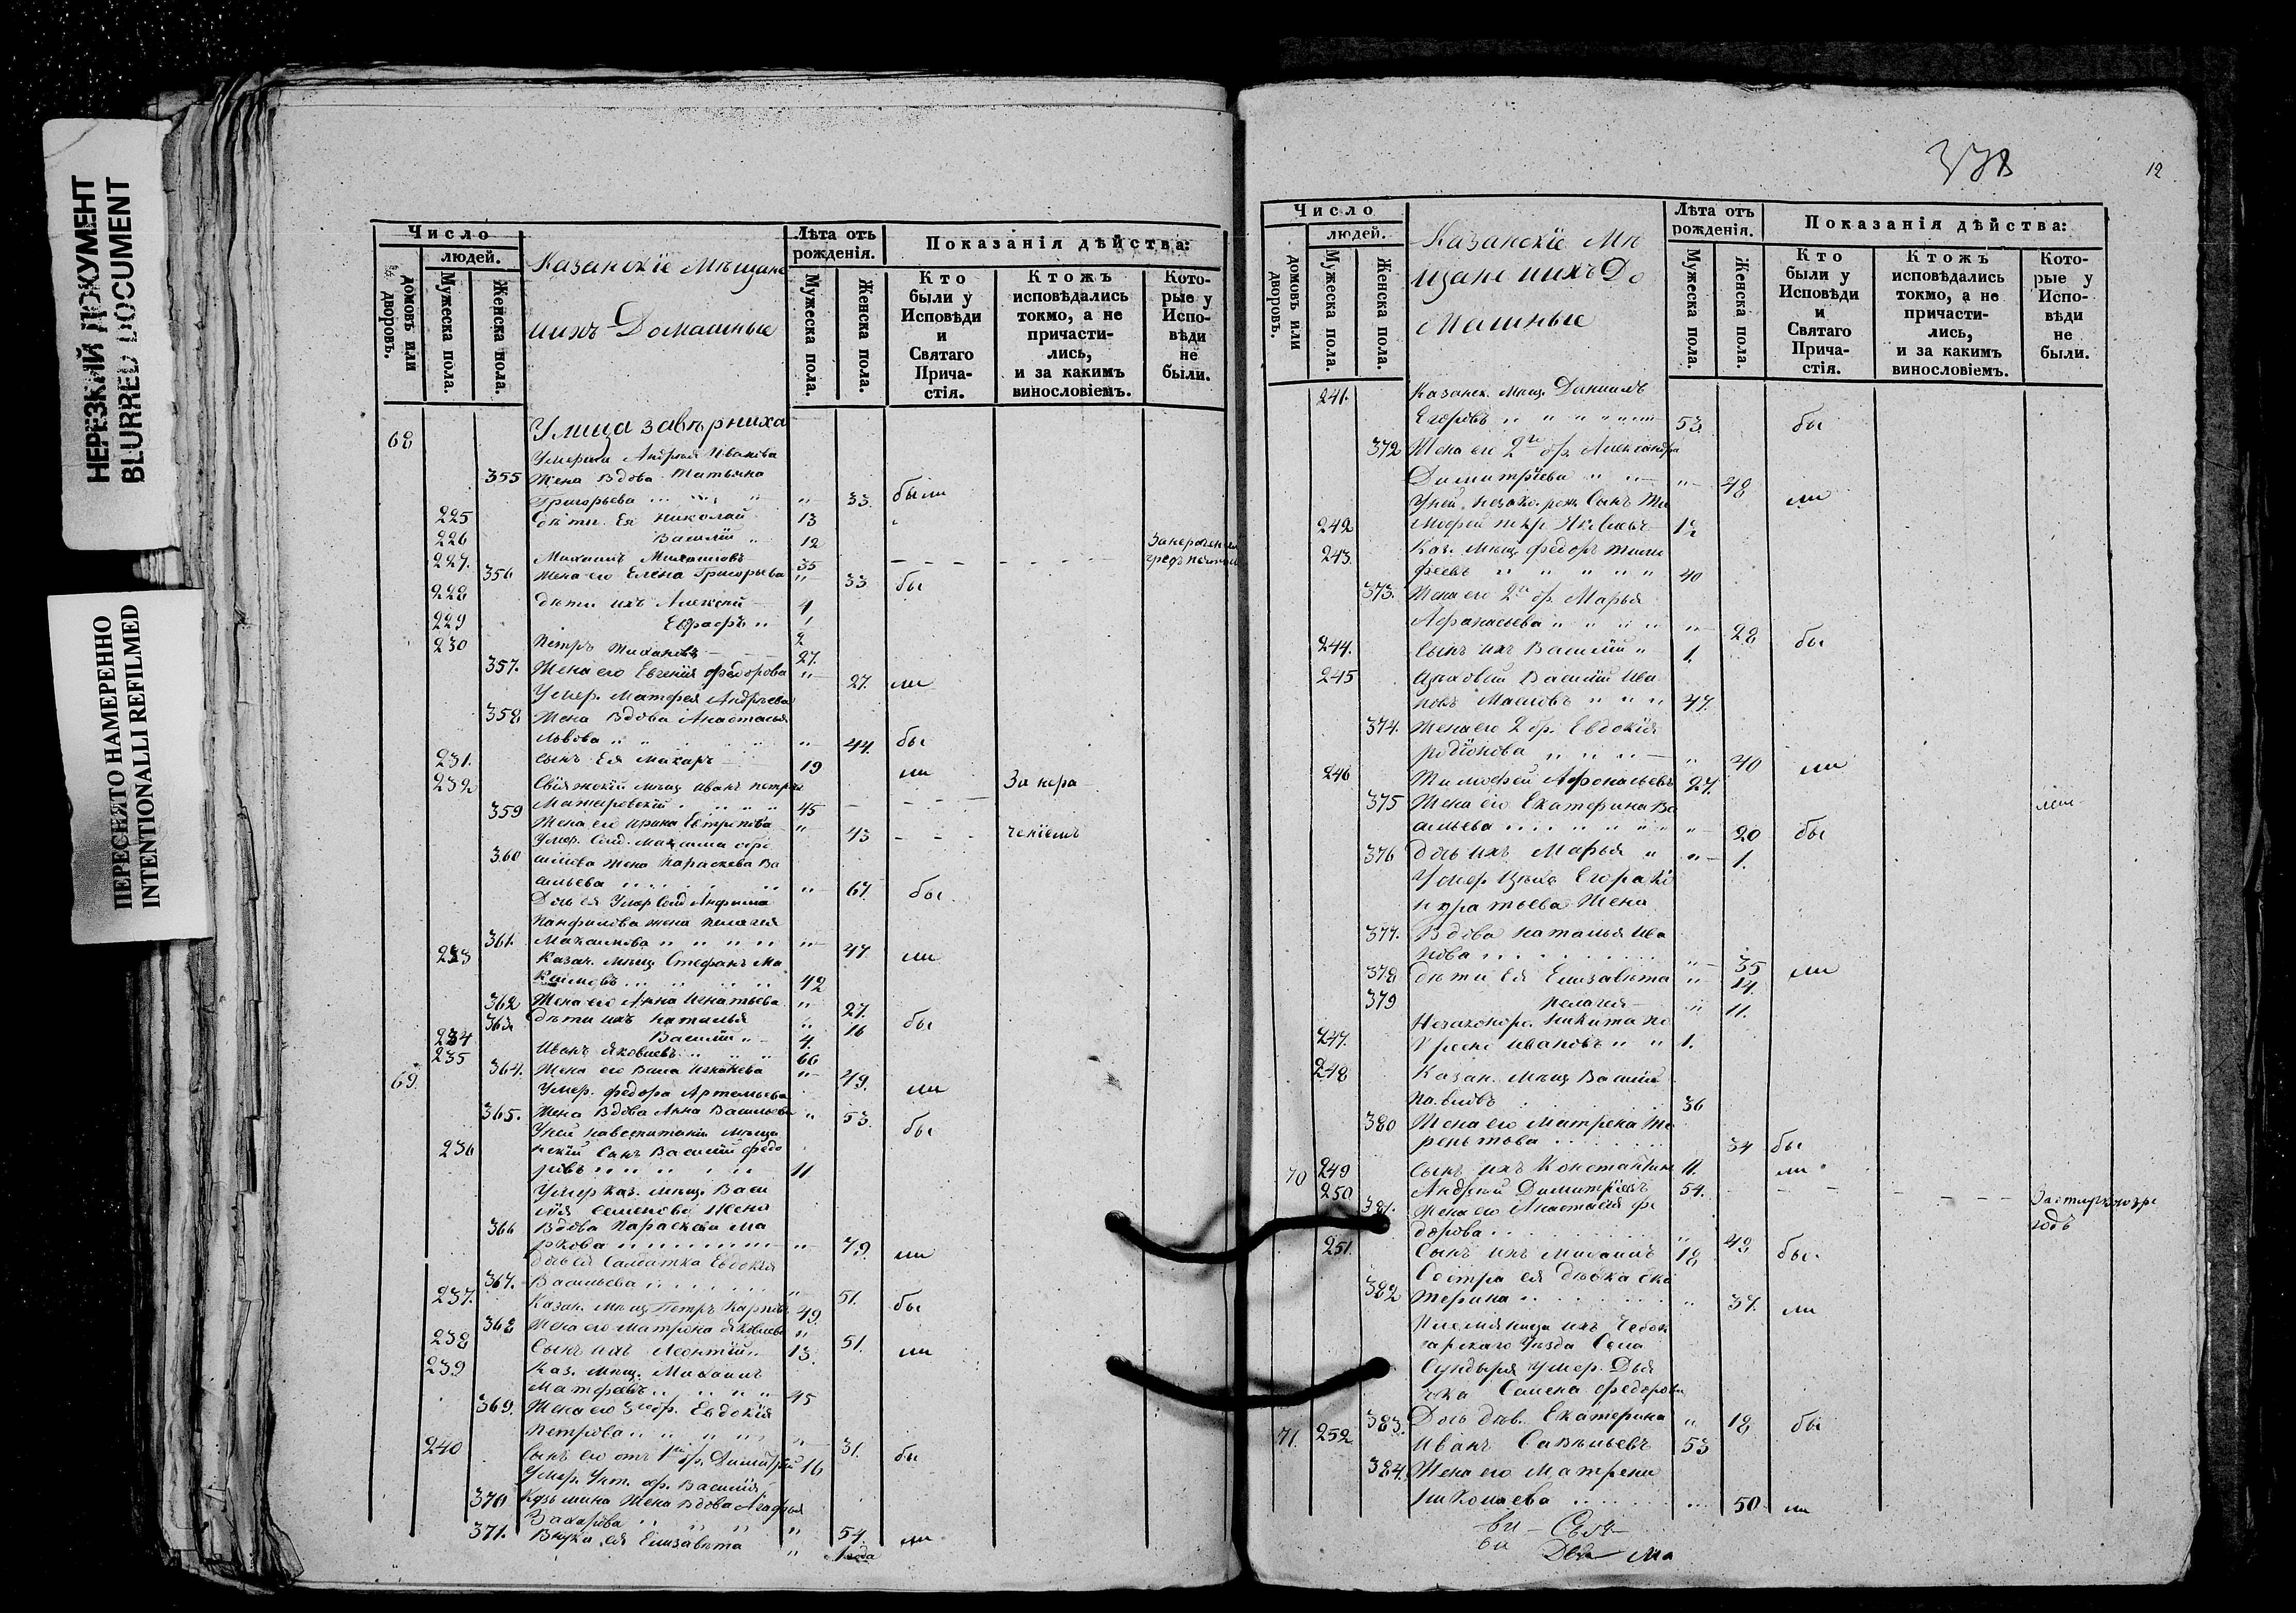 НЕРЕЗКИЙ ДОКУМЕНТ
BLURRED DOCUMENT
ПЕРЕСНЯТО НАМЕРЕННО
INTENTIONALLI REFILMED
Число
людей.
домовъ или дворовъ.
Мужеска пола.
Женска пола.
Казанскіе Мѣщане
ихъ Домашные
Лѣта отъ рожденія.
Мужеска пола.
Женска пола.
Показанія дѣйства:
Кто были у Исповѣди и Святаго Прича-стія.
Ктожъ исповѣдались токмо, а не причасти-лись, и за какимъ винословіемъ.
Кото-рые у Испо-вѣди не были.
68 Улица
Умерш Андрея Иванова
355 Жена Вдова Татьяна
Григорьева 33 были
225 Дѣти Ея Николай 13
226 Василій 12
227. Михаилъ Михаиловъ 35
356 Жена его Елена Григорьева 33 бы
228 дѣти ихъ Алексѣй 4
229 Евграфъ
230 Петръ 27.
357. Жена его Евгенія Федорова 27. ли
Умер. Матфея Андрѣева
358 Жена Вдова Анастасья
Львова 44. бы
231. сынъ Ея Макаръ 19 ли
232 Свіяжскій мѣщ Иванъ Петровъ За нера
45
359 Жена его Ирина 43 ченіемъ
Умер. Солд. Максима
360 жена Параскева Ва
сильева 67 бы
Дочь ея Умер Солд
Панфилова жена Пелагея
361. 47 ли
233 Казан. мѣщ Стефанъ Ма
ксимовъ 42
362 Жена его Анна Игнатьева 27.
363 дѣти ихъ Наталья 16 бы
234 Василій 4.
235 Иванъ Яковлевъ 66
364. Жена его 49. ли
69. Умер. Федора Артемьева
365. Жена Вдова Анна Васильева 53. бы
У ней на воспитаніи мѣща
236 нскій Сынъ Василій Федо
ровъ 11
Умер Каз. мѣщ. Васи
лія Семенова Жена
366 Вдова Параскева Ма
ркова 79. ли
дочь ея Солдатка Евдокія
367. Васильева 51. бы
237. Казан. мѣщ Петръ Карповъ 49.
368 Жена его Матрона Яковлева 51. ли
238 Сынъ ихъ Леонтій 13.
239 Каз. мѣщ. Михаилъ
Матфѣевъ 45
369. Жена его 3 бр. Евдокія
Петрова 31. бы
240 сынъ его отъ 1 бр. Димитрій 16
Умер. Унт. оф. Василія
370 Кузьмина Жена Вдова Агафья
Захарова 54. ли
371. Внука ея Елизавета 1 года
378
12
Число
людей.
домовъ или дворовъ.
Мужеска пола.
Женска пола.
Казанскіе Мѣ
щане ихъ До
машные
Лѣта отъ рожденія.
Мужеска пола.
Женска пола.
Показанія дѣйства:
Кто были у Исповѣди и Святаго Прича-стія.
Ктожъ исповѣдались токмо, а не причасти-лись, и за какимъ винословіемъ.
Кото-рые у Испо-вѣди не были.
241. Казанск. мѣщ. Даніилъ
Егоровъ 53. бы
372 Жена его 2 бр. Александра
Димитріева 48 ли
У ней незако. рож. Сынъ Ти
242 мофей 12
243. Каз. мѣщ Федоръ Тимо
феевъ 40
373. Жена его 2 бр. Марья
Афанасьева 28 бы
244. Сынъ ихъ Василій 1.
245 Цеховый Василій Ива
новъ Масловъ 47.
374. Жена его 2 бр. Евдокія
Родіонова 40 ли
246 Тимофей Афонасьевъ 27.
375 Жена его Екатерина Ва
сильева 20 бы
376 дочь ихъ Марья 1.
Умер Цѣхо Егора Ко
ндратьева Жена
377. Вдова Наталья Ива
нова 35 ли
378 дѣти Ея Елизавета 14.
379 Пелагея 11.
Незаконоро. Никита по
247. Ивановъ 1.
248 Казан. мѣщ Василій
Павловъ 36
380 Жена его Матрена Те
рентова 34 бы
70 249 Сынъ ихъ Константинъ 11. ли
250 Андрѣй Димитріевъ 54.
381. Жена его Анастасія Фе
дорова 48
251. Сынъ ихъ Михаилъ 18 бы
Сестра ея дѣвка Ека
382 терина 37. ли
Племянница ихъ Чебок
сарскаго Уѣзда Села
Сундыря Умер. Дья
чка Семена Федорова
383. Дочь дѣв. Екатерина 18 бы
71. 252 Иванъ Савельевъ 53
384. Жена его Матрена
Николаева 50 ли